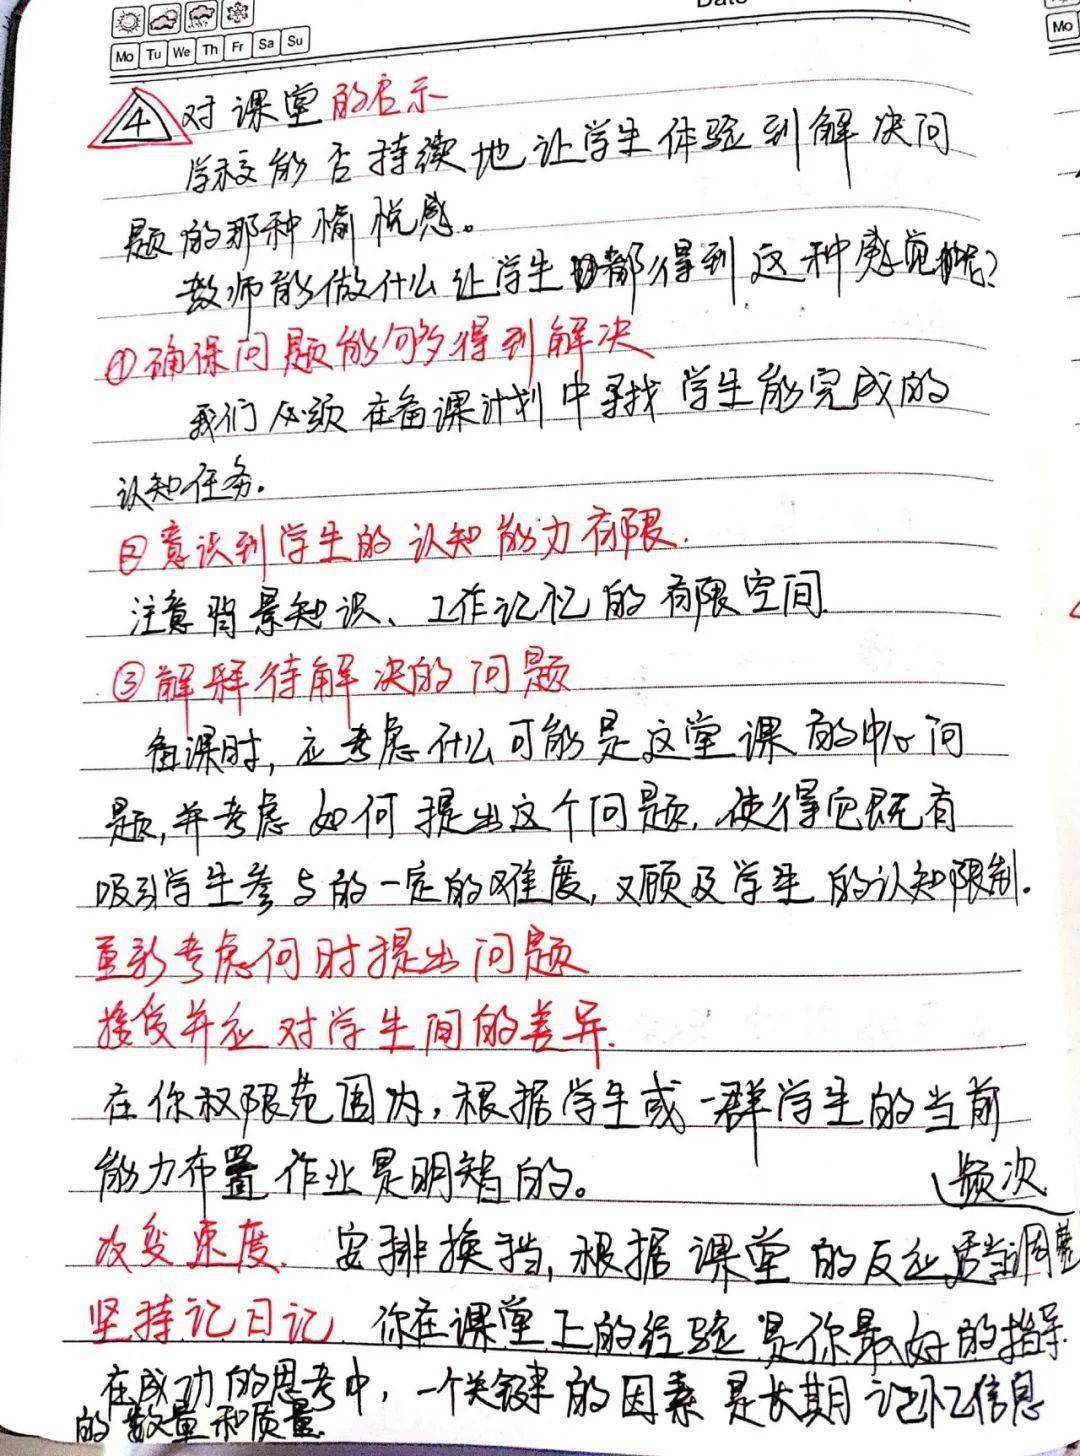 Date
Mo Tu We Th Fr Sa Su
Mo
4 对课堂的启示
学校能否持续地让学生体验到解决问
题的那种愉悦感。
教师能做什么让学生都得到这种感觉呢?
①确保问题能够得到解决
我们必须在备课计划中寻找学生能完成的
认知任务.
②意识到学生的认知能力有限.
注意背景知识、工作记忆的有限空间.
③解释待解决的问题
备课时,应考虑什么可能是这堂课的中心问
题,并考虑如何提出这个问题,使得它既有
吸引学生参与的一定的难度,又顾及学生的认知限制.
重新考虑何时提出问题
接受并应对学生间的差异.
在你权限范围内,根据学生或一群学生的当前
能力布置作业是明智的。
频次
改变速度. 安排换挡,根据课堂的反应适当调整
坚持记日记. 你在课堂上的经验是你最好的指导.
在成功的思考中,一个关键的因素是长期记忆信息
的数量和质量.